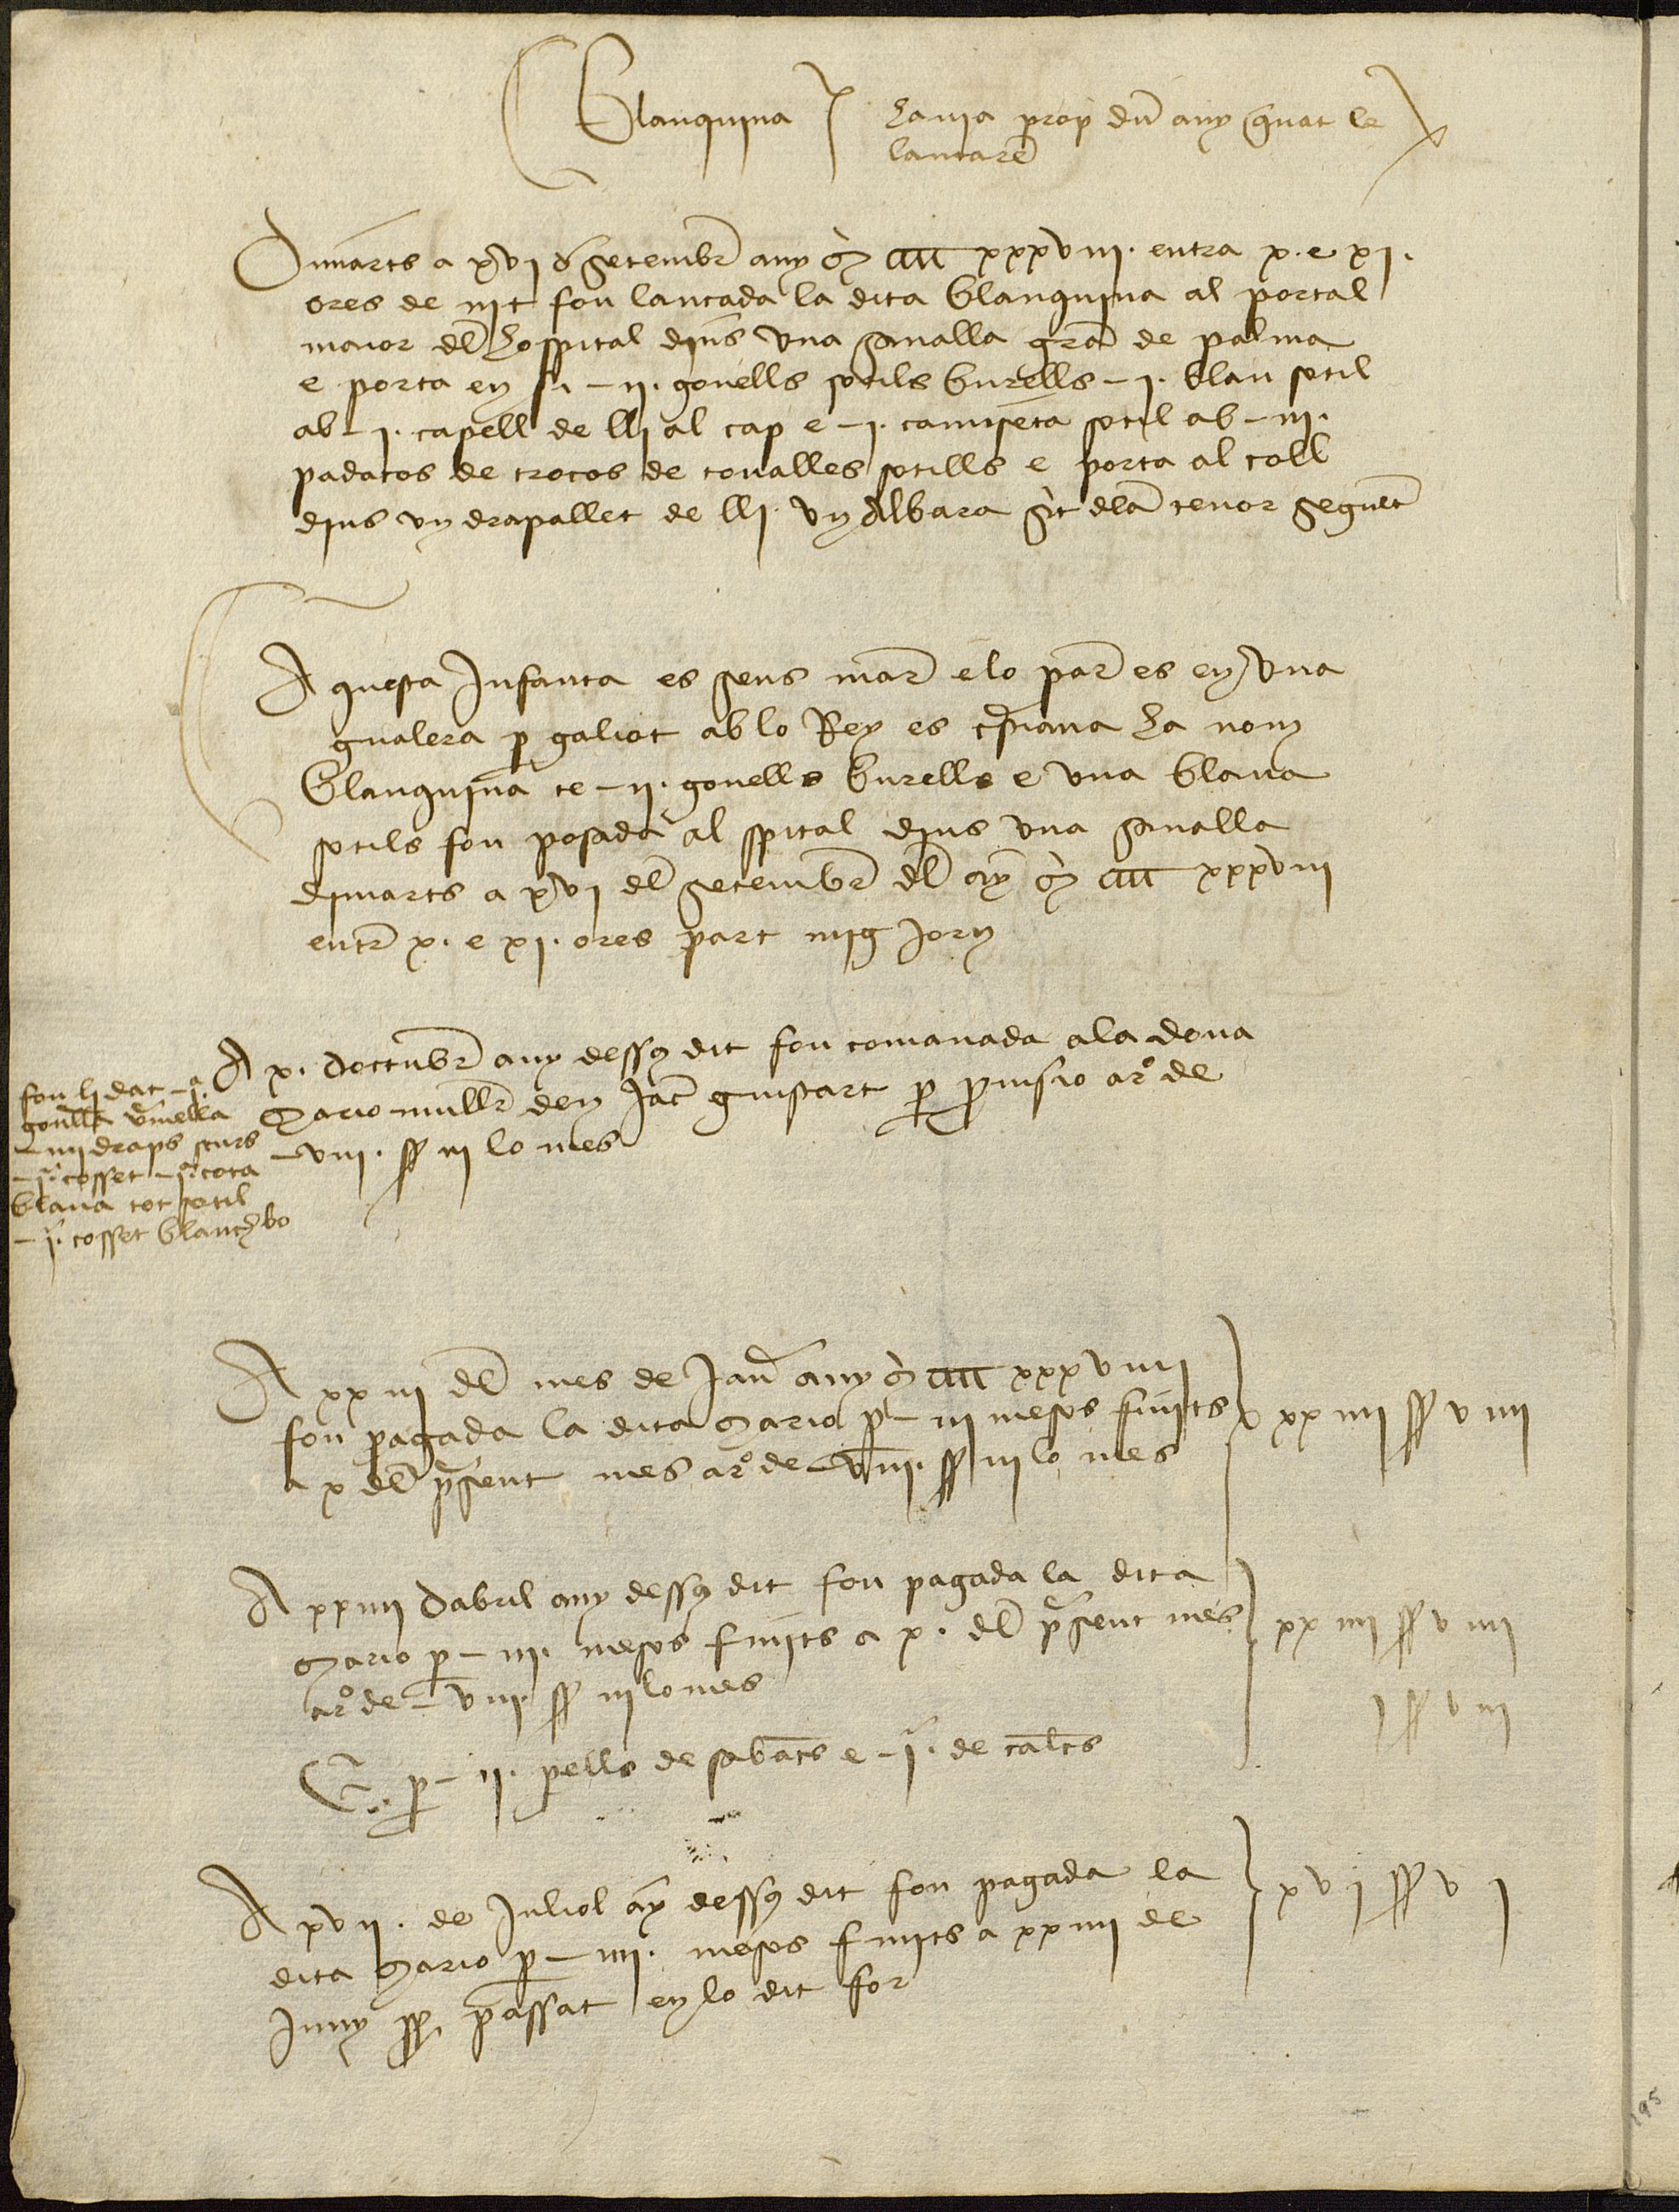 Blanquina
havia prop dun any quat la
lançaren
Dimarts a xvi de setembre any M CCCC xxxviii. entra x. e xi.
ores de nit fou lancada la dita blanquina al portal
maior del hospital dins una senalla gran de palma
e porta en si - ii. gonells sotils burells - i. blau sotil
ab - i. capell de lli al cap e - i. camiseta sotil ab - iii.
padacos de trocos de tovalles sotills e porta al coll
dins un drapallet de lli. un Albara scrit dela tenor seguent
Aquesta Infanta es sens mare e lo pare es en una
gualera per galiot ab lo Rey es cristiana ha nom
blanquina te - ii. gonells burells e una blava
sotils fou posada al spital dins una senalla
dimarts a xvi del setembre del any M CCCC xxxviii
entre x. e xi. ores part mig Jorn
fou li dat - i.a
gonella vermella
- iiii draps scurs
- i. cosset - i.a cota
blava tot sotil
- i. cosset blanch bo
A x. doctubre any dessus dit fou comanada ala dona
Maria muller den Jac guistart per provisio a ro de
- viii. ss iii lo mes
A xx iii del mes de Janer any M CCCC xxxviiii
fou pagada la dita Maria per - iii mesos finits
a x del present mes a ro de - viii. ss iii lo mes
xx iiii ss v iiii
A xxiiii dabril any dessus dit fou pagada la dita
Maria per - iii. mesos finits a x. del present mes
a ro de - viii. ss iii lo mes
xx iiii ss v iiii
Item. per - ii. pells de sabates e - i. de calces
i ss v iii
A xvii. de Juliol any dessus dit fou pagada la
dita Maria per - iii. mesos finits a xxiiii de
Juny pp. passat en lo dit for
xvi ss v i
195